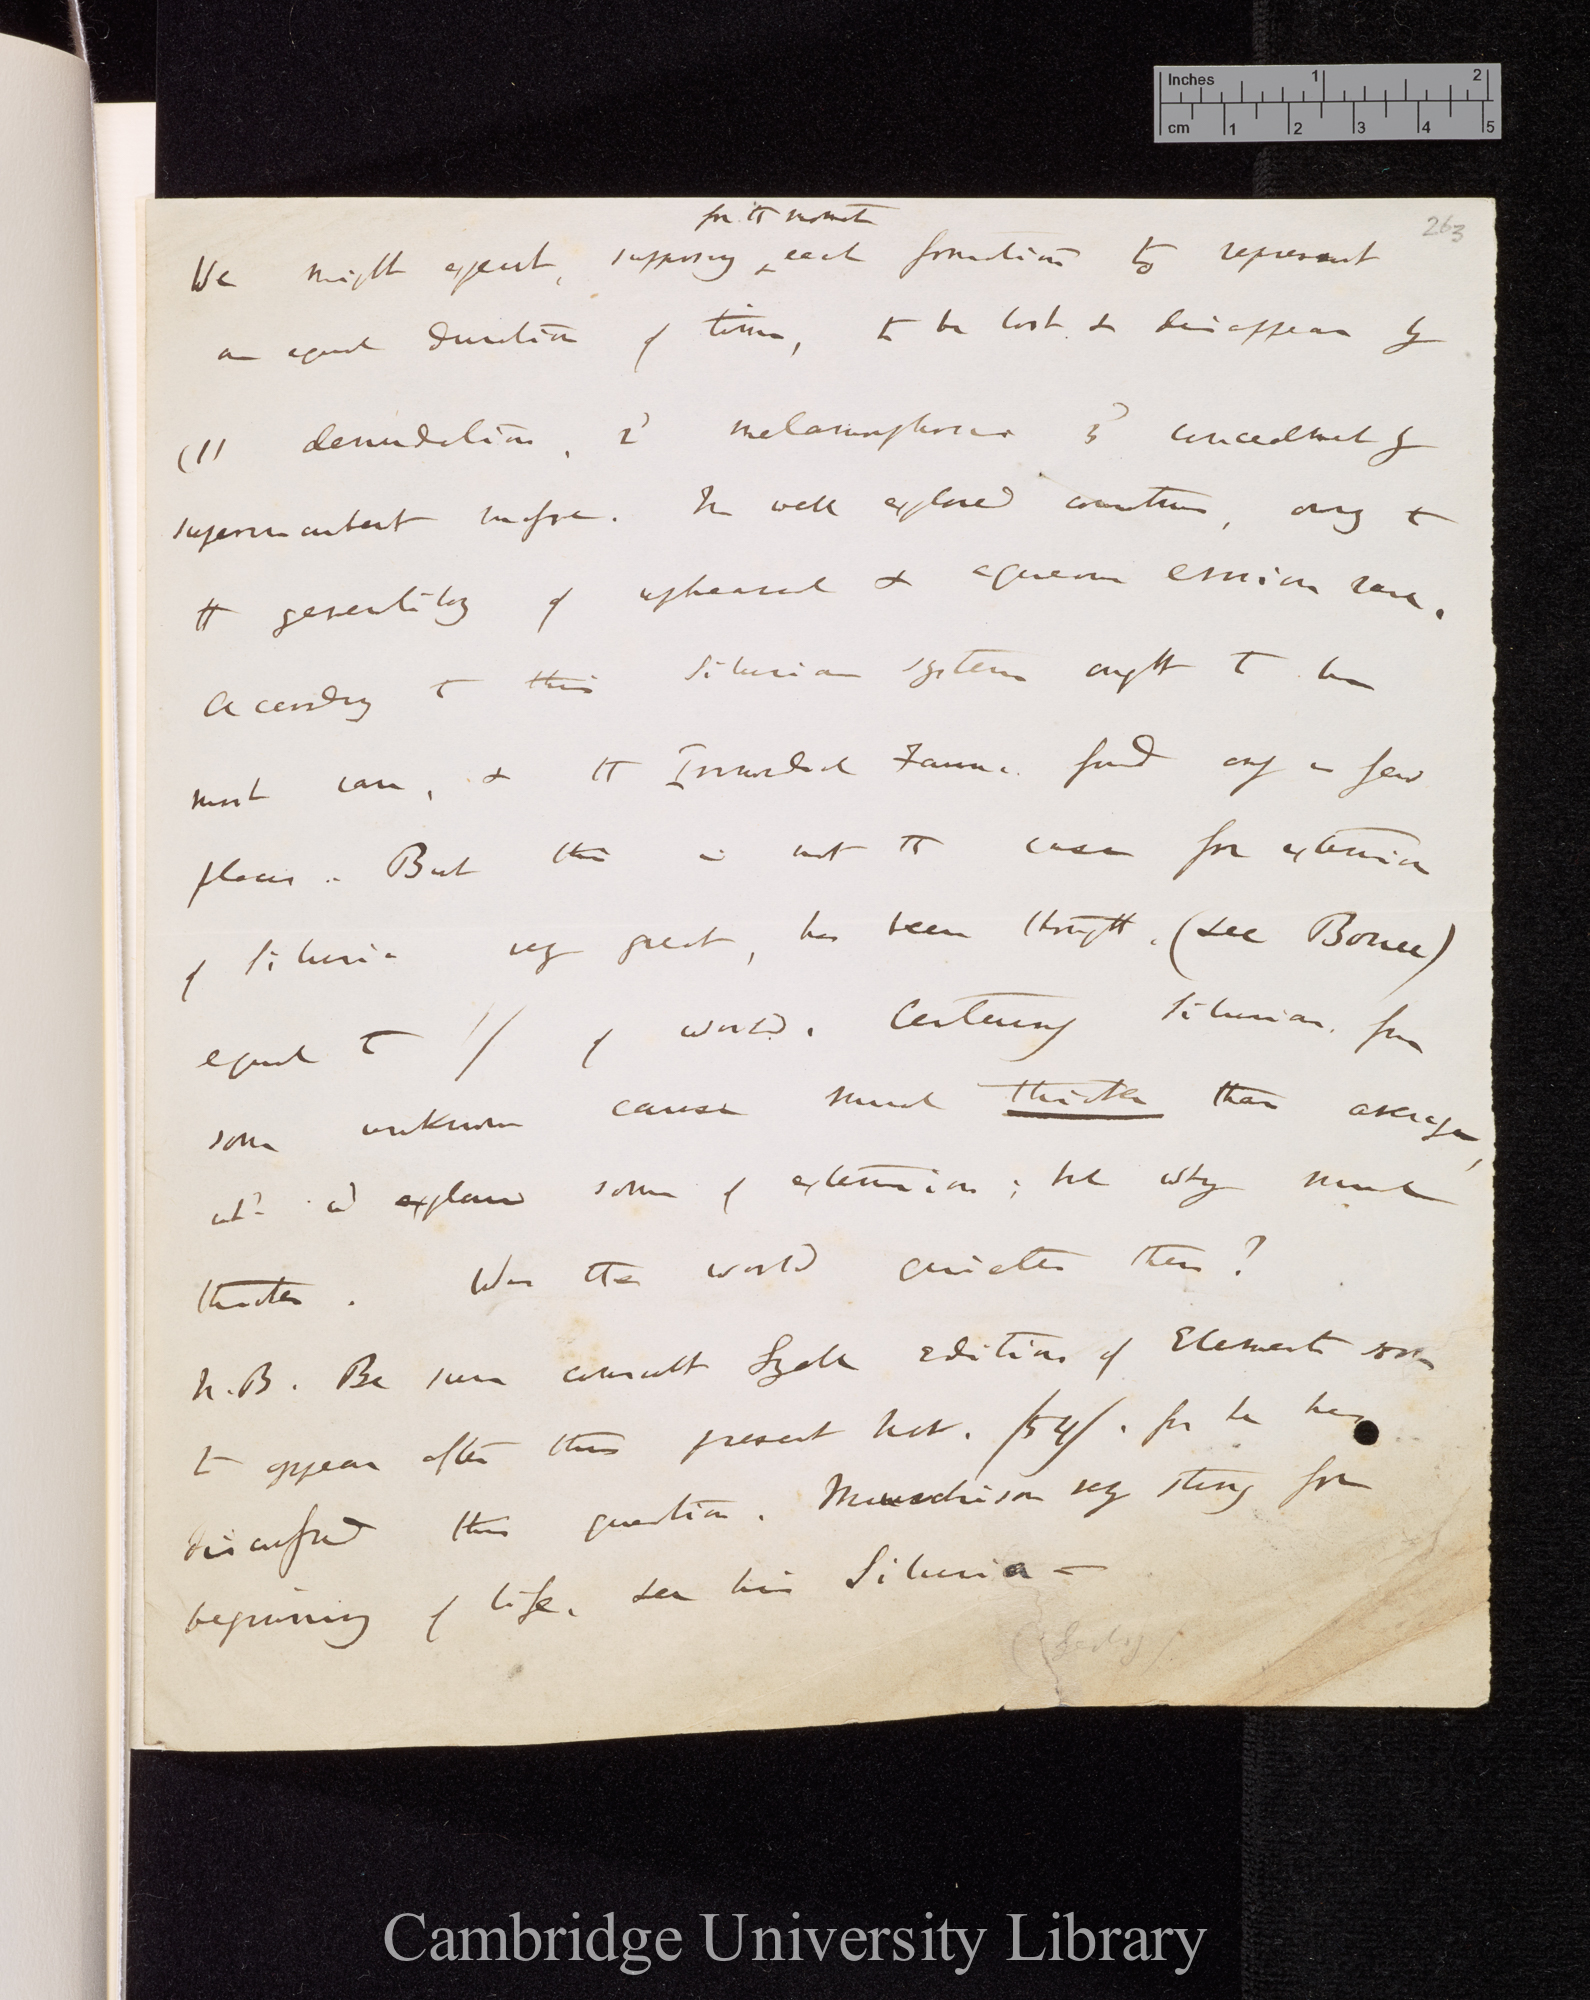 Inches 1 2
cm 1 2 3 4 5
263
for the moment
We might expect, supposing ^ each formation to represent
an equal duration of time, to be lost & disappear by
(1) denudation, 2) metamorphosis 3) concealment by
superincumbent masses. In well explored countries, owing to
the generality of upheaval & aqueous erosion rare.
According to this Silurian system ought to be
most rare, & the Primordial Fauna found only in few
places. But this is not the case for extension
of Siluria very great, has been thought. (see Bouee)
equal to 1/ of world. Certainly Silurian from
some unknown cause much thicker than average,
wd explain some of extension; but why much
thicker. Was the world quieter then?
N.B. Be sure consult Lyells edition of Elements soon
to appear after this present Nov. /54/. for he has
discussed this question. Murchison very strong for
beginning of life, see his Siluria —
Cambridge University Library